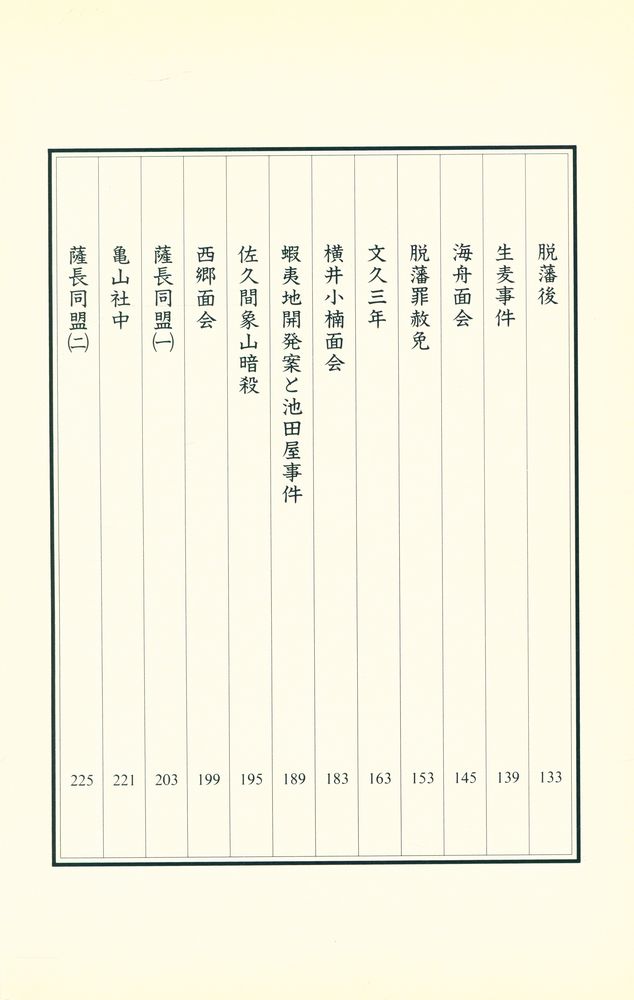 脱藩後 133
生麦事件 139
海舟面会 145
脱藩罪赦免 153
文久三年 163
横井小楠面会 183
蝦夷地開発案と池田屋事件 189
佐久間象山暗殺 195
西郷面会 199
薩長同盟㈠ 203
亀山社中 221
薩長同盟㈡ 225